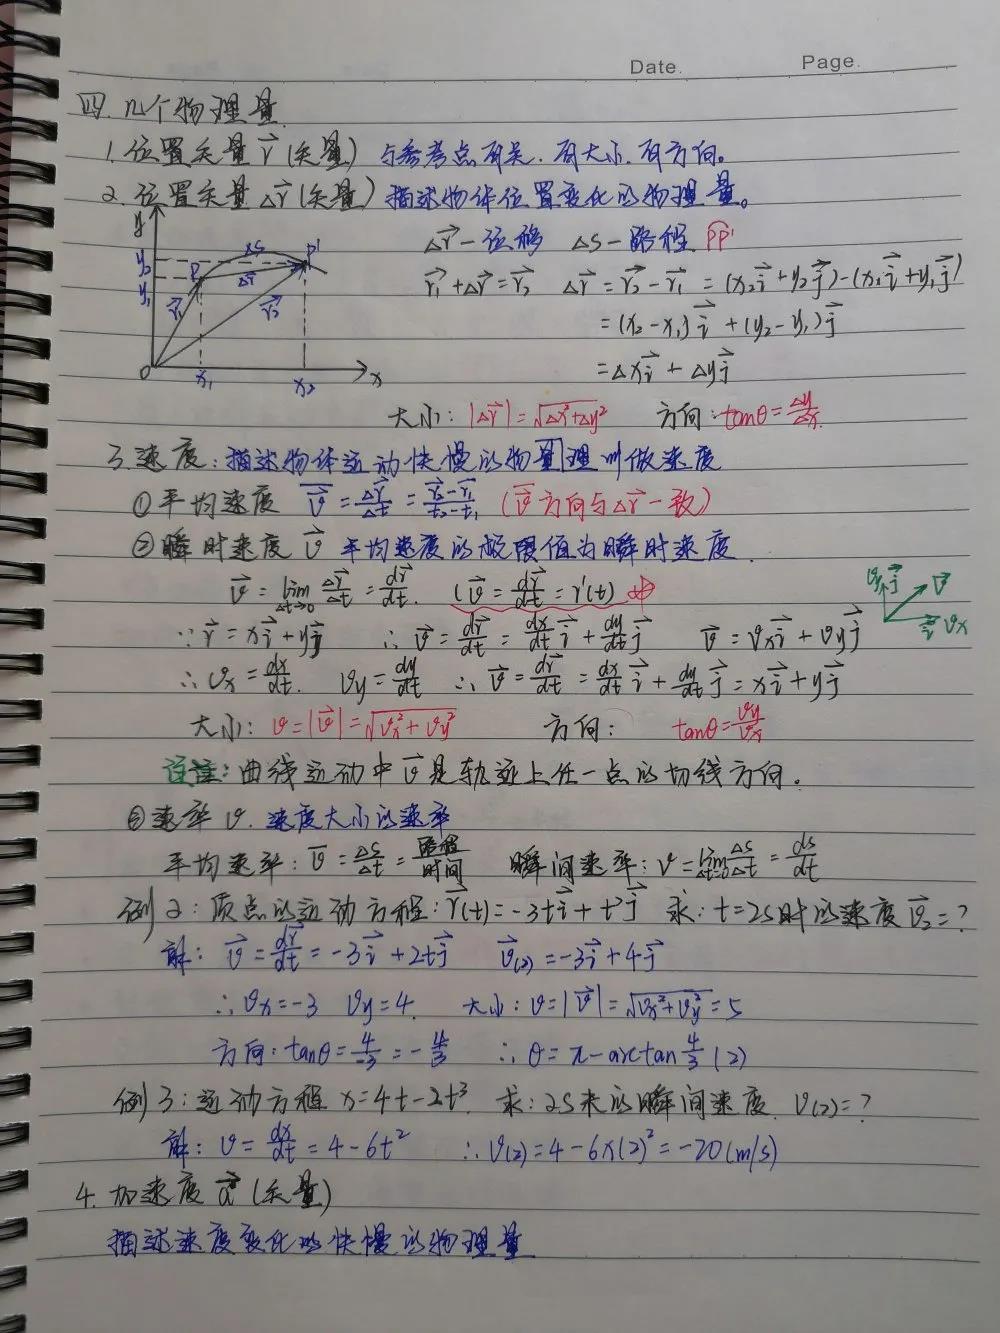 Date. Page.
四.几个物理量
1.位置矢量 r⃗ (矢量) 与参考点有关.有大小.有方向。
2.位置矢量 Δr⃗ (矢量) 描述物体位置变化的物理量。
y
y₂
y₁
P
ΔS
P'
Δr⃗
r⃗₁
r⃗₂
O
x₁
x₂
x
Δr⃗-位移 ΔS-路程 PP'
r⃗₁+Δr⃗=r⃗₂ Δr⃗=r⃗₂-r⃗₁=(x₂i⃗+y₂j⃗)-(x₁i⃗+y₁j⃗)
=(x₂-x₁)i⃗+(y₂-y₁)j⃗
=Δxi⃗+Δyj⃗
大小:|Δr⃗|=√(Δx²+Δy²) 方向:tanθ=Δy/Δx
3.速度:描述物体运动快慢的物量理叫做速度
①平均速度 v̄⃗=Δr⃗/Δt=(r⃗₂-r⃗₁)/(t₂-t₁) (v̄⃗方向与Δr⃗一致)
②瞬时速度 v⃗ 平均速度的极限值为瞬时速度.
v⃗=lim(Δt→0)Δr⃗/Δt=dr⃗/dt. (v⃗=dr⃗/dt=r'(t))
vyj⃗ v⃗
i⃗ vx
∵r⃗=xi⃗+yj⃗ ∴v⃗=dr⃗/dt=dx/dt i⃗+dy/dt j⃗ v⃗=vxi⃗+vyj⃗
∴vx=dx/dt. vy=dy/dt ∴v⃗=dr⃗/dt=dx/dt i⃗+dy/dt j⃗=xi⃗+yj⃗
大小:v=|v⃗|=√(vx²+vy²) 方向: tanθ=vy/vx
注:曲线运动中v⃗是轨迹上任一点的切线方向.
③速率v.速度大小的速率
平均速率:v̄=ΔS/Δt=路程/时间 瞬间速率:v=lim(Δt→0)ΔS/Δt=ds/dt
例2:质点的运动方程:r⃗(t)=-3ti⃗+t²j⃗ 求:t=2s时的速度v⃗₂=?
解: v⃗=dr⃗/dt=-3i⃗+2tj⃗ v⃗(2)=-3i⃗+4j⃗
∴vx=-3 vy=4. 大小:v=|v⃗|=√(vx²+vy²)=5
方向:tanθ=4/-3=-4/3 ∴θ=π-arctan4/3(2)
例3:运动方程 x=4t-2t³. 求:2s末的瞬间速度.v(2)=?
解: v=dx/dt=4-6t² ∴v(2)=4-6×(2)²=-20(m/s)
4.加速度 a⃗ (矢量)
描述速度变化的快慢的物理量